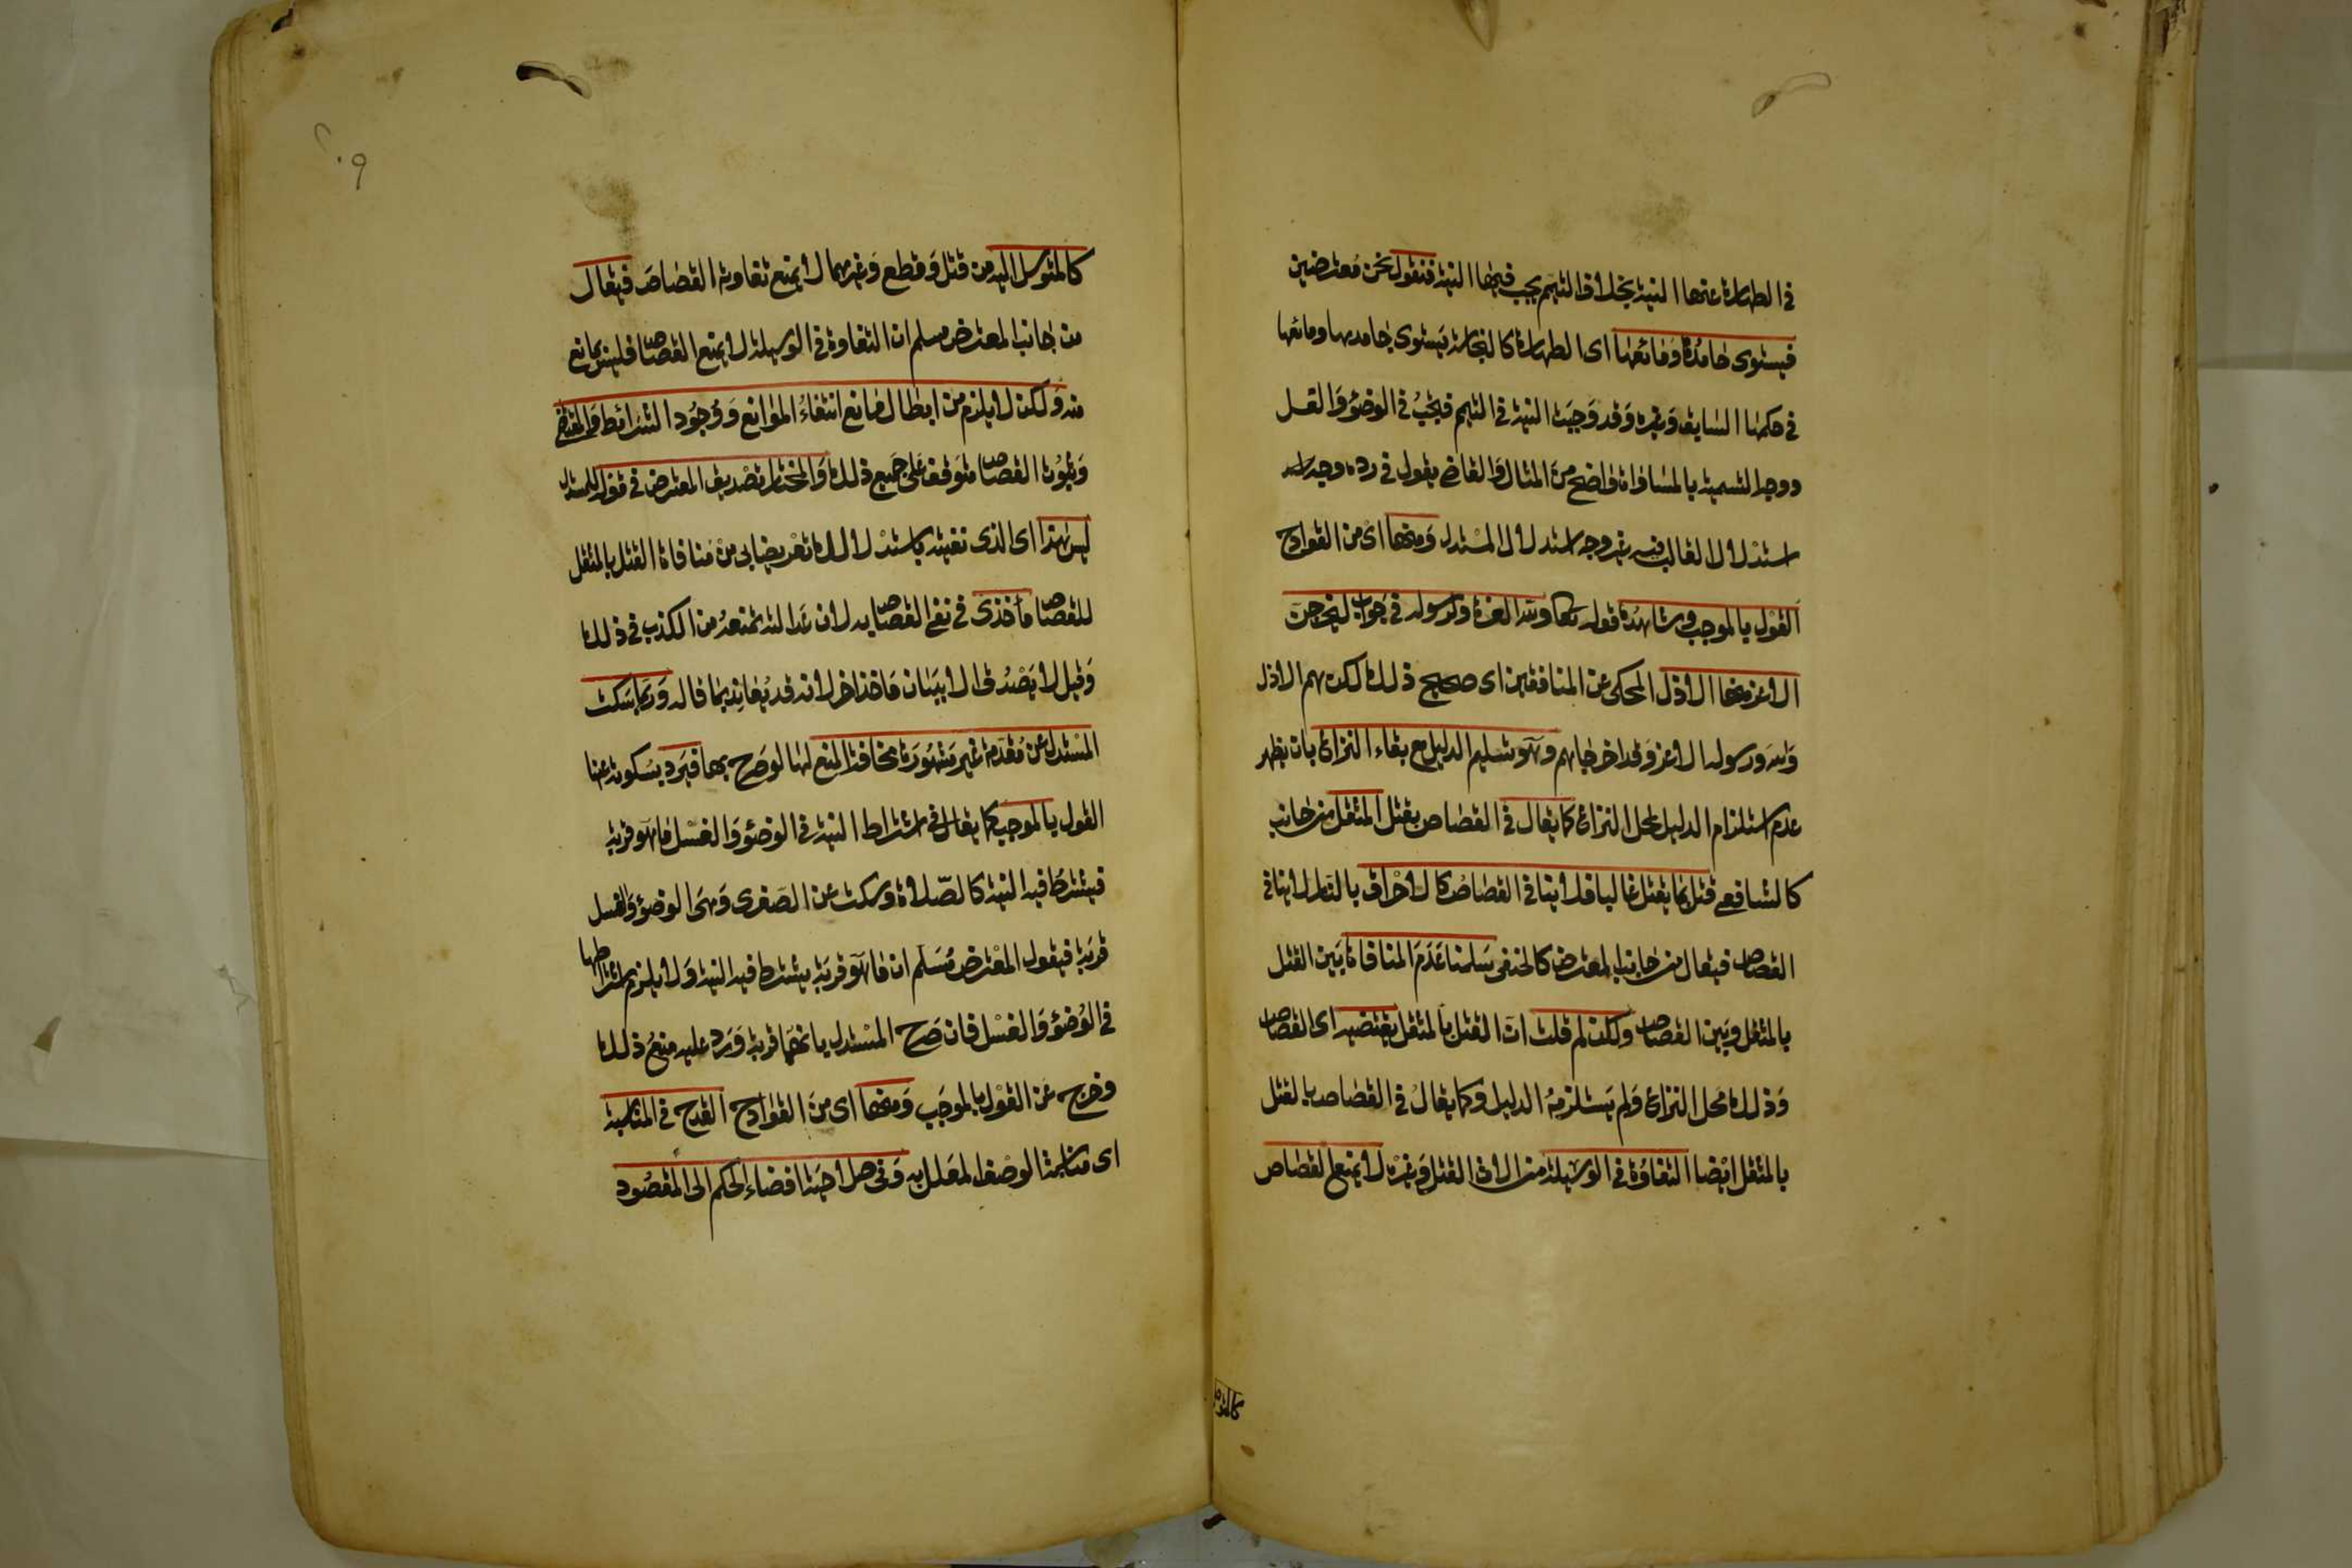 في الطهارة عنها النية بخلاف التيمم يجب فيها النية فنقول نحن معترضين
فيستوى جامدها ومائعها اى الطهارة كالنجاسة يستوى جامدها ومائعها
في حكمها السابق وغيره وقد وجبت النية في التيمم فيجب في الوضوء والغسل
ووجه التسمية بالمساواة واضح من المثال والقاضي يقول في رده وجه
استدلال القالب فيه غير وجه استدلال المستدل ومنها اى من القوادح
القول بالموجب وشاهده قوله تعالى ولله العزة ولرسوله في جواب ليخرجن
الاعز منها الاذل المحكى عن المنافقين اى صحيح ذلك لكن هم الاذل
والله ورسوله الاعز وقد اخرجاهم وهو تسليم الدليل مع بقاء النزاع بان يظهر
عدم استلزام الدليل لمحل النزاع كما يقال في القصاص بقتل المثقل من جانب
كالشافعي قتل بما يقتل غالبا فلا ينافي القصاص كالاحراق بالنار لا ينافي
القصاص فيقال من جانب المعترض كالحنفى سلمنا عدم المنافاة بين القتل
بالمثقل وبين القصاص ولكن لم قلت ان القتل بالمثقل يقتضيه اى القصاص
وذلك محل النزاع ولم يستلزمه الدليل وكما يقال في القصاص بالقتل
بالمثقل ايضا التفاوت في الوسيلة من الات القتل وغيره لا يمنع القصاص
كالمتوسل
كالمتوسل اليه من قتل وقطع وغيرهما لا يمنع تفاوته القصاص فيقال
من جانب المعترض مسلم ان التفاوت في الوسيلة لا يمنع القصاص فليس بمانع
منه ولكن لا يلزم من ابطال مانع انتفاء الموانع ووجود الشرائط والمقتضى
وثبوت القصاص متوقف على جميع ذلك والمختار تصديق المعترض في قوله للمستدل
ليس هذا اى الذى نفيته باستدلالك تعريضا بى من منافاة القتل بالمثقل
للقصاص مأخذى في نفى القصاص به لان عدالته تمنعه من الكذب في ذلك
وقيل لا يصدق الا ببيان مأخذ اخر لانه قد يعاند بما قاله وربما سكت
المستدل عن مقدمة غير مشهورة مخافة المنع لها لو صرح بها فيرد بسكوته عنها
القول بالموجب كما يقال في اشتراط النية في الوضوء والغسل ما هو قربة
فيشترط فيه النية كالصلاة وسكت عن الصغرى وهى الوضوء والغسل
قربة فيقول المعترض مسلم ان ما هو قربة يشترط فيه النية ولا يلزم اشتراطها
في الوضوء والغسل فان صرح المستدل بانهما قربة ورد عليه منع ذلك
وخرج عن القول بالموجب ومنها اى من القوادح القدح في المناسبة
اى مناسبة الوصف المعلل به وفى صلاحية افضاء الحكم الى المقصود